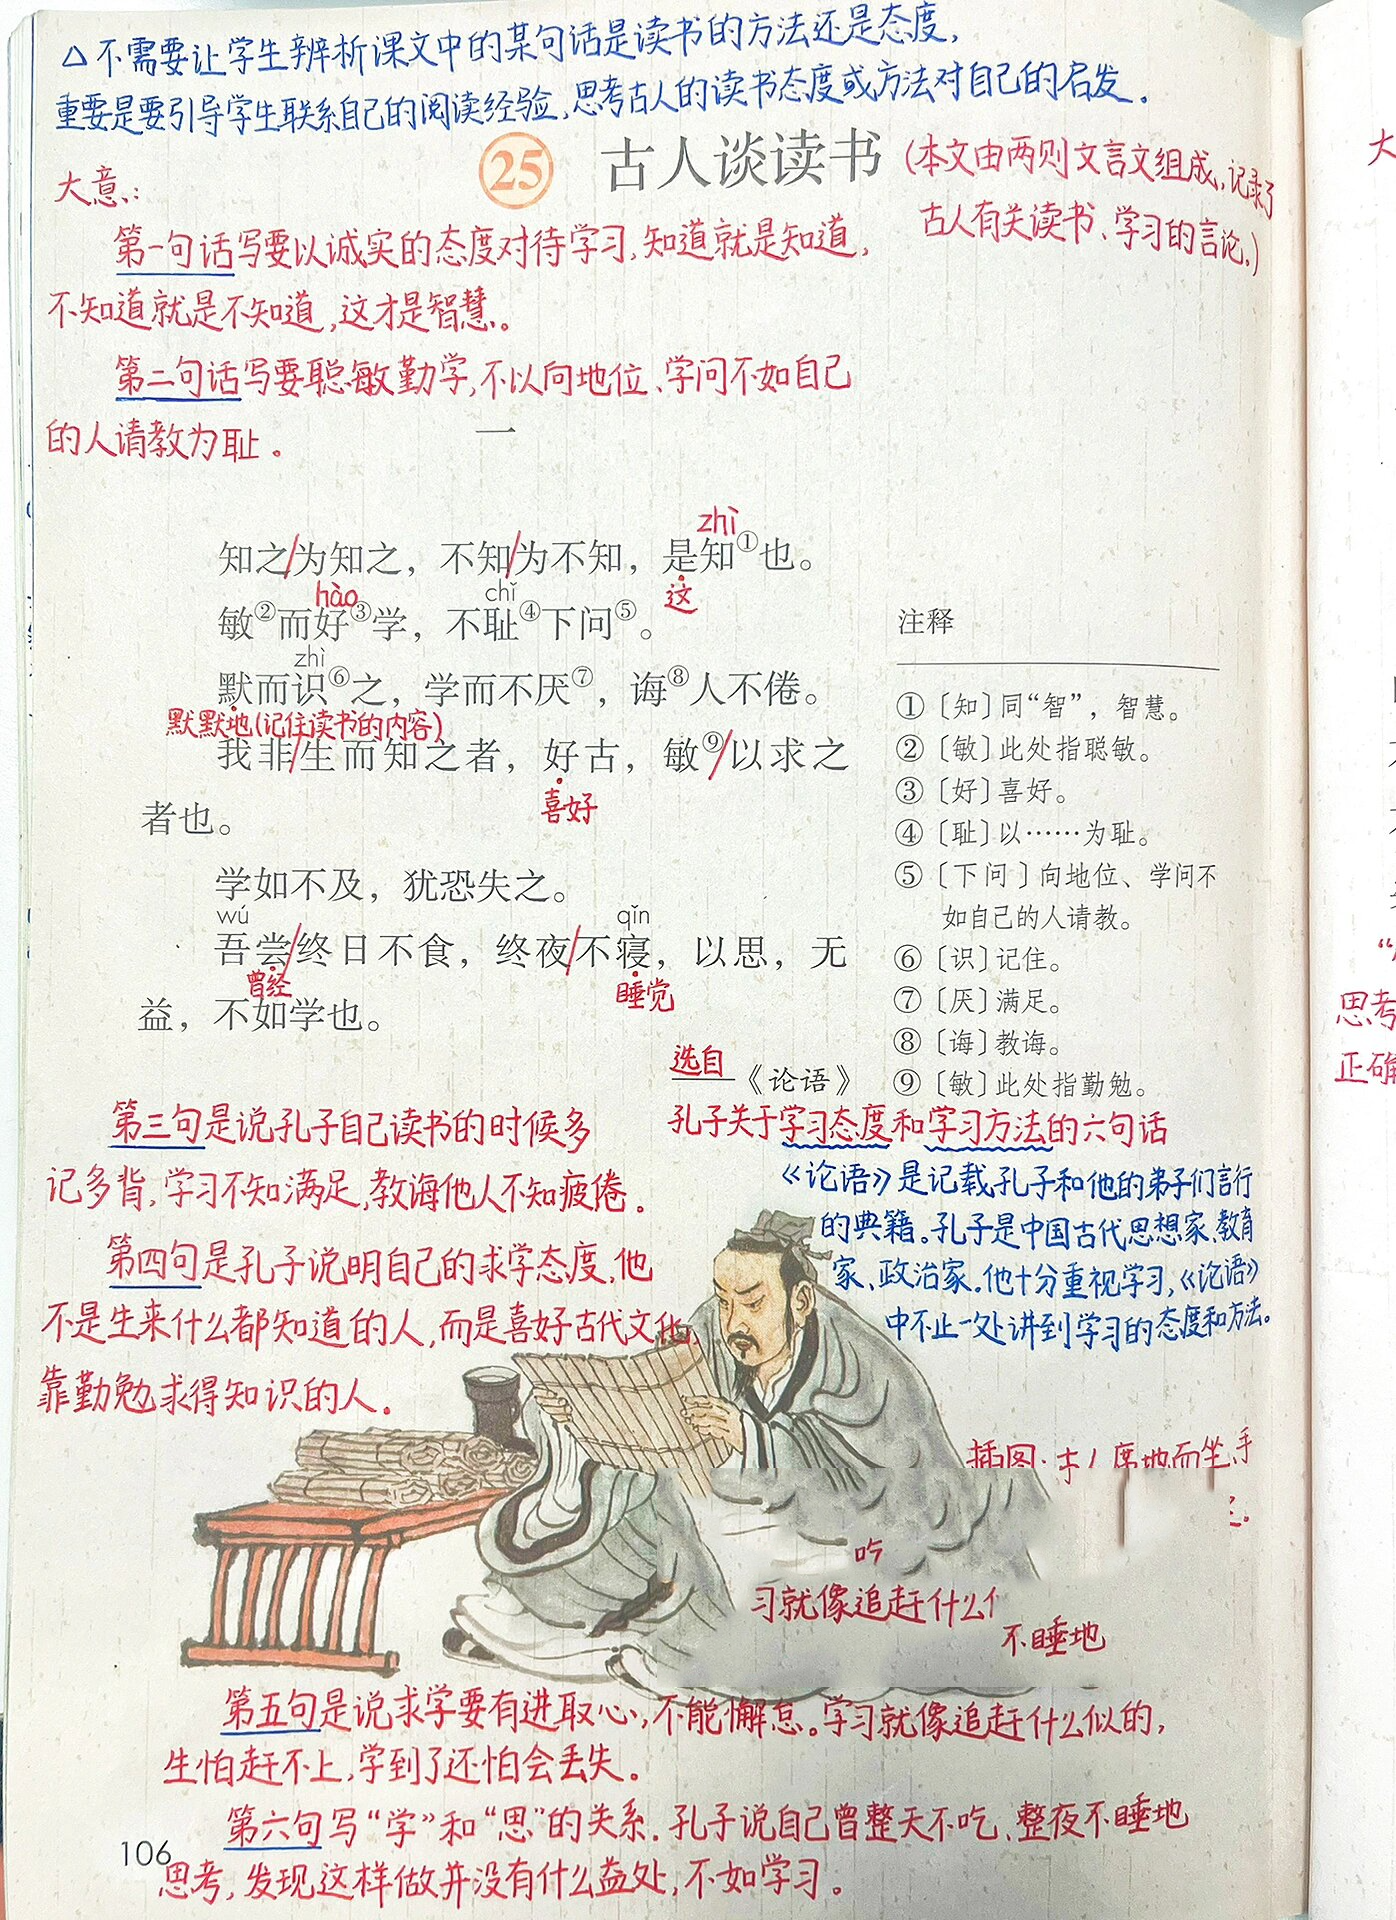 △不需要让学生辨析课文中的某句话是读书的方法还是态度,
重要是要引导学生联系自己的阅读经验,思考古人的读书态度或方法对自己的启发.
25 古人谈读书
(本文由两则文言文组成,记录了
古人有关读书、学习的言论。)
大意:
第一句话写要以诚实的态度对待学习,知道就是知道,
不知道就是不知道,这才是智慧。
第二句话写要聪敏勤学,不以向地位、学问不如自己
的人请教为耻。
一
zhì
知之/为知之，不知/为不知，是知①也。
hào chǐ 这
敏②而好③学，不耻④下问⑤。
zhì
默而识⑥之，学而不厌⑦，诲⑧人不倦。
默默地(记住读书的内容)
我非/生而知之者，好古，敏⑨/以求之
喜好
者也。
学如不及，犹恐失之。
wú qǐn
吾尝/终日不食，终夜/不寝，以思，无
曾经 睡觉
益，不如学也。
选自
——《论语》
注释
①〔知〕同“智”，智慧。
②〔敏〕此处指聪敏。
③〔好〕喜好。
④〔耻〕以……为耻。
⑤〔下问〕向地位、学问不
如自己的人请教。
⑥〔识〕记住。
⑦〔厌〕满足。
⑧〔诲〕教诲。
⑨〔敏〕此处指勤勉。
孔子关于学习态度和学习方法的六句话
《论语》是记载孔子和他的弟子们言行
的典籍。孔子是中国古代思想家、教育
家、政治家.他十分重视学习,《论语》
中不止一处讲到学习的态度和方法。
第三句是说孔子自己读书的时候多
记多背,学习不知满足,教诲他人不知疲倦。
第四句是孔子说明自己的求学态度,他
不是生来什么都知道的人,而是喜好古代文化,
靠勤勉求得知识的人.
插图: 席地而坐,手
吟
习就像追赶什么
不睡地
第五句是说求学要有进取心,不能懈怠。学习就像追赶什么似的,
生怕赶不上,学到了还怕会丢失。
第六句写“学”和“思”的关系.孔子说自己曾整天不吃、整夜不睡地
思考,发现这样做并没有什么益处,不如学习。
106
大
思考
正确